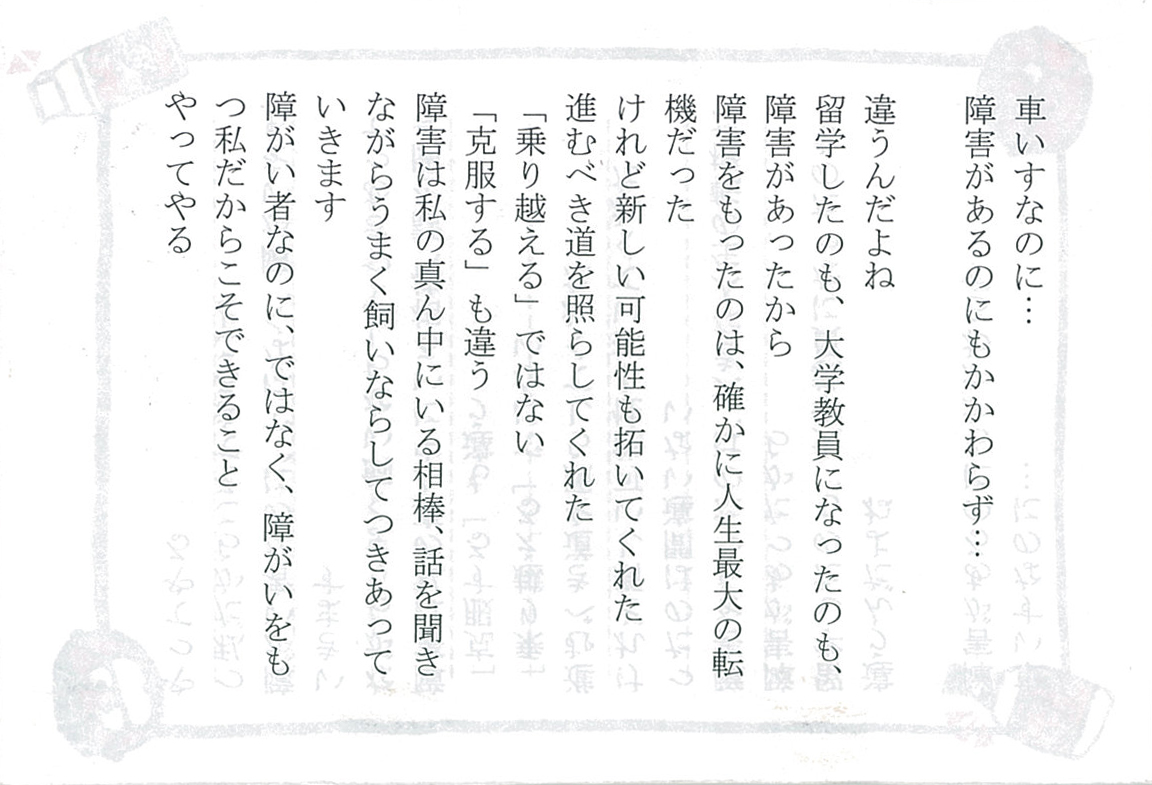 車いすなのに…
障害があるのにもかかわらず…
違うんだよね
留学したのも、大学教員になったのも、
障害があったから
障害をもったのは、確かに人生最大の転
機だった
けれど新しい可能性も拓いてくれた
進むべき道を照らしてくれた
「乗り越える」ではない
「克服する」も違う
障害は私の真ん中にいる相棒、話を聞き
ながらうまく飼いならしてつきあって
いきます
障がい者なのに、ではなく、障がいをも
つ私だからこそできること
やってやる